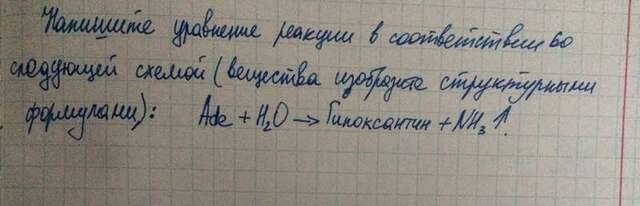 Напишите уравнение реакции в соответствии со
следующей схемой (вещества изобразите структурными
формулами): Ade + H₂O → Гипоксантин + NH₃↑.